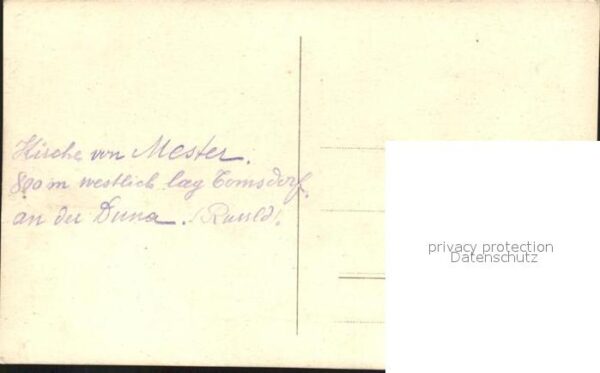 Kirche von Mester.
800 m westlich lag Tomsdorf.
an der Duna. (Russld).
privacy protection
Datenschutz